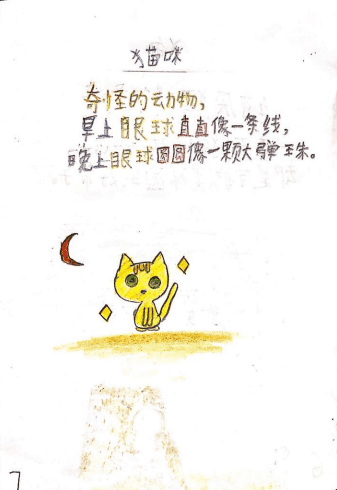 猫咪
奇怪的动物，
早上眼球直直像一条线，
晚上眼球圆圆像一颗大弹珠。
7